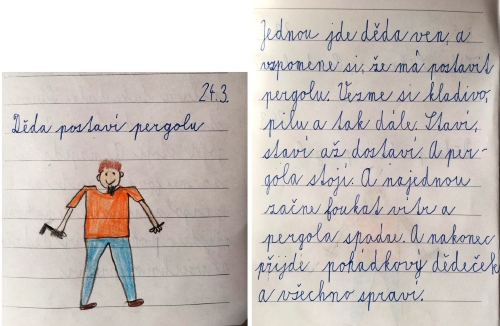 24.3.
Děda postaví pergolu
Jednou jde děda ven, a
vzpomene si, že má postavit
pergolu. Vezme si kladivo,
pilu a tak dále. Staví,
staví až dostaví. A per-
gola stojí. A najednou
začne foukat vítr a
pergola spadne. A nakonec
přijde pohádkový dědeček
a všechno spraví.